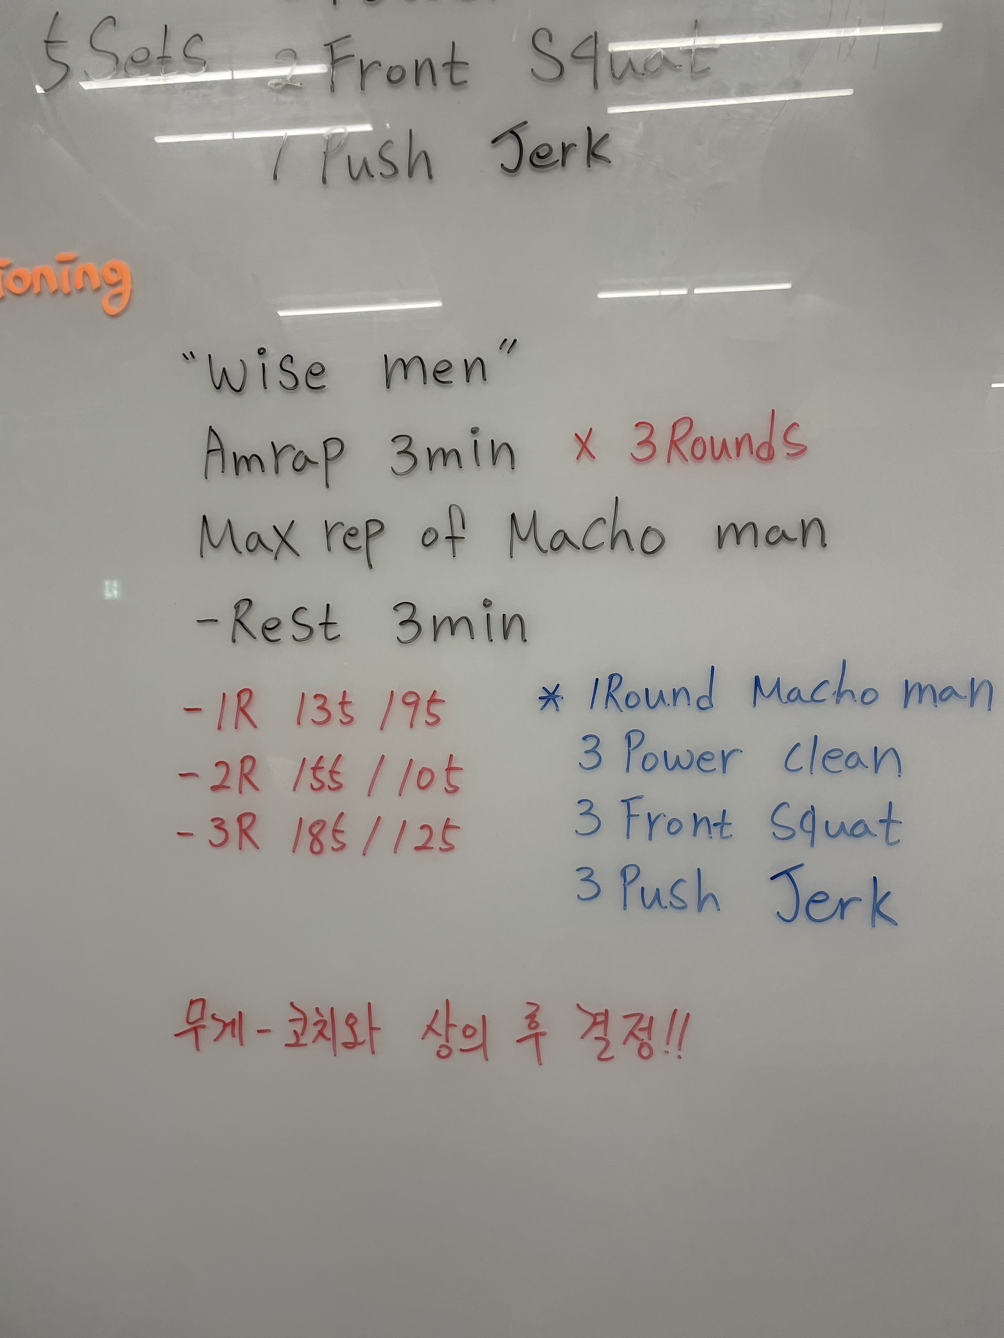 5 Sets 2 Front Squat
1 Push Jerk
ioning
"Wise men"
Amrap 3min x 3Rounds
Max rep of Macho man
-Rest 3min
-1R 135/95
-2R 155/105
-3R 185/125
* 1Round Macho man
3 Power clean
3 Front Squat
3 Push Jerk
무게-코치와 상의 후 결정!!